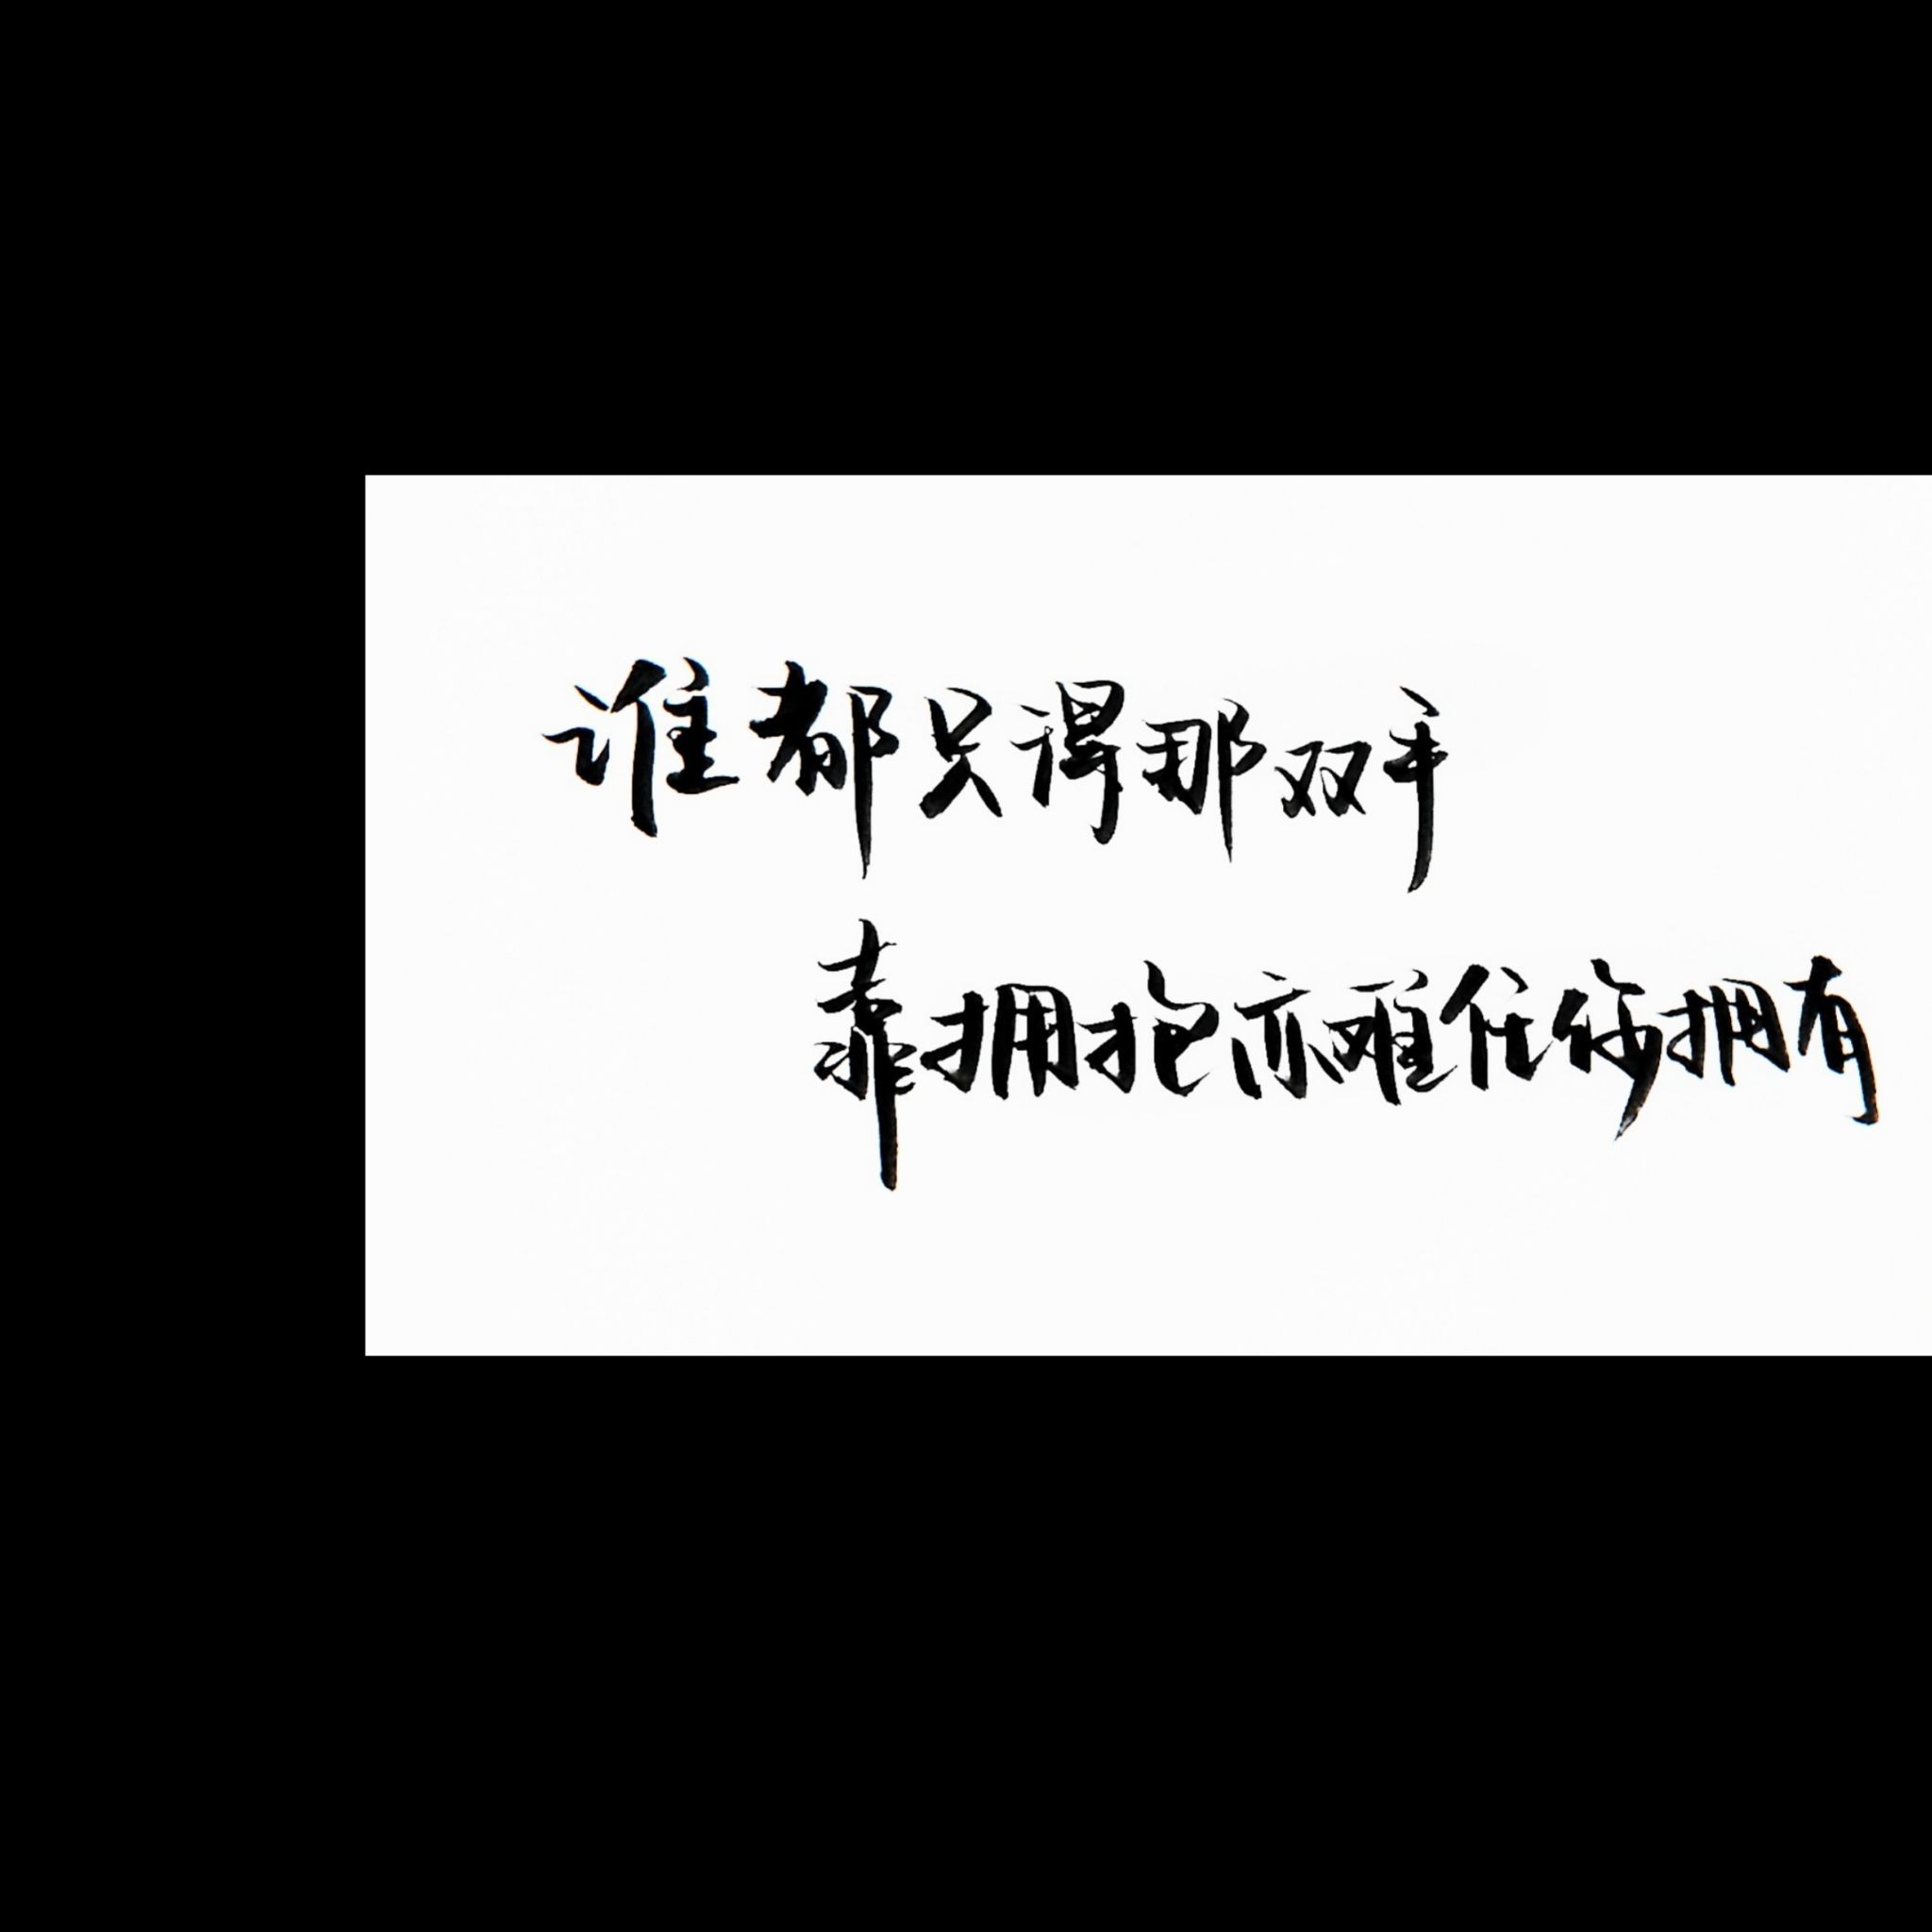 谁都只得那双手
靠拥抱亦难任你拥有